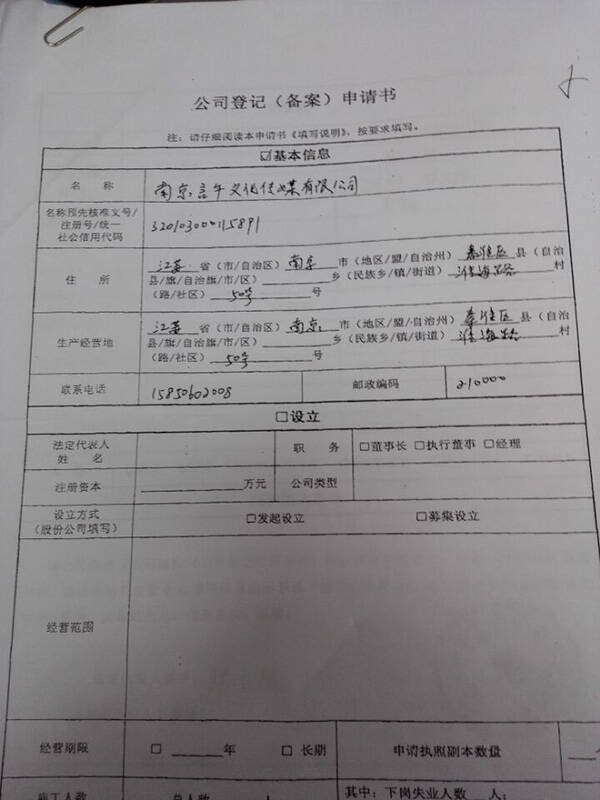 公司登记（备案）申请书
注：请仔细阅读本申请书《填写说明》，按要求填写。
☑基本信息
名 称 南京言午文化传媒有限公司
名称预先核准文号/
注册号/统一
社会信用代码 320103000115891
住 所 江苏 省（市/自治区） 南京 市（地区/盟/自治州） 秦淮区 县（自治
县/旗/自治旗/市/区）________乡（民族乡/镇/街道） 淮海路 村
（路/社区） 50号 号
生产经营地 江苏 省（市/自治区） 南京 市（地区/盟/自治州） 秦淮区 县（自治
县/旗/自治旗/市/区）________乡（民族乡/镇/街道） 淮海路 村
（路/社区） 50号 号
联系电话 15850602008 邮政编码 210000
□设立
法定代表人
姓 名 职 务 □董事长 □执行董事 □经理
注册资本 ________万元 公司类型
设立方式
（股份公司填写） □发起设立 □募集设立
经营范围
经营期限 □ ______年 □ 长期 申请执照副本数量
雇工人数 总人数 人 其中：下岗失业人数 人；